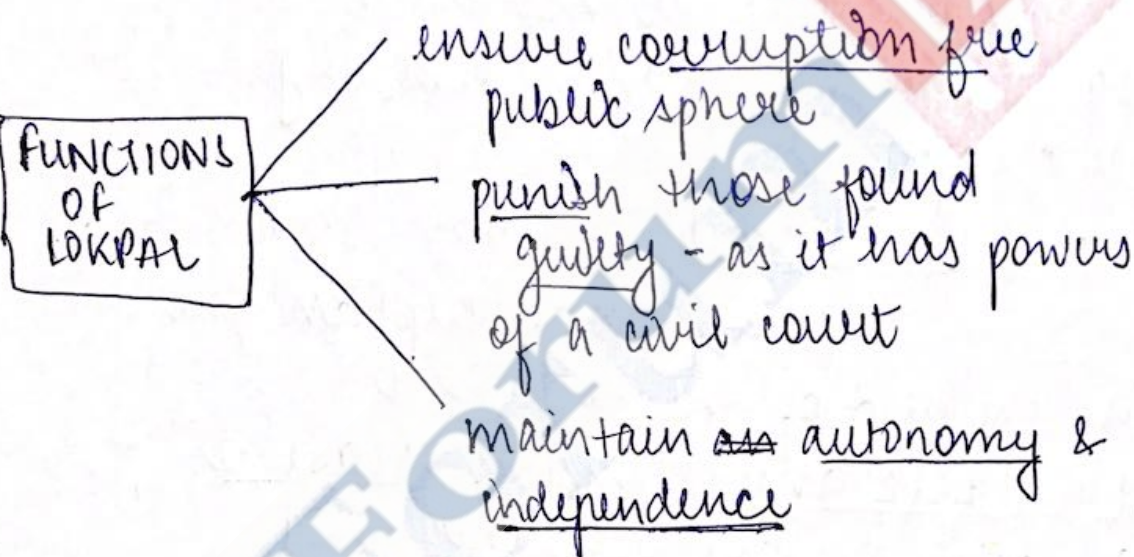 FUNCTIONS
OF
LOKPAL
ensure corruption free
public sphere
punish those found
guilty - as it has powers
of a civil court
maintain autonomy &
independence
Forum